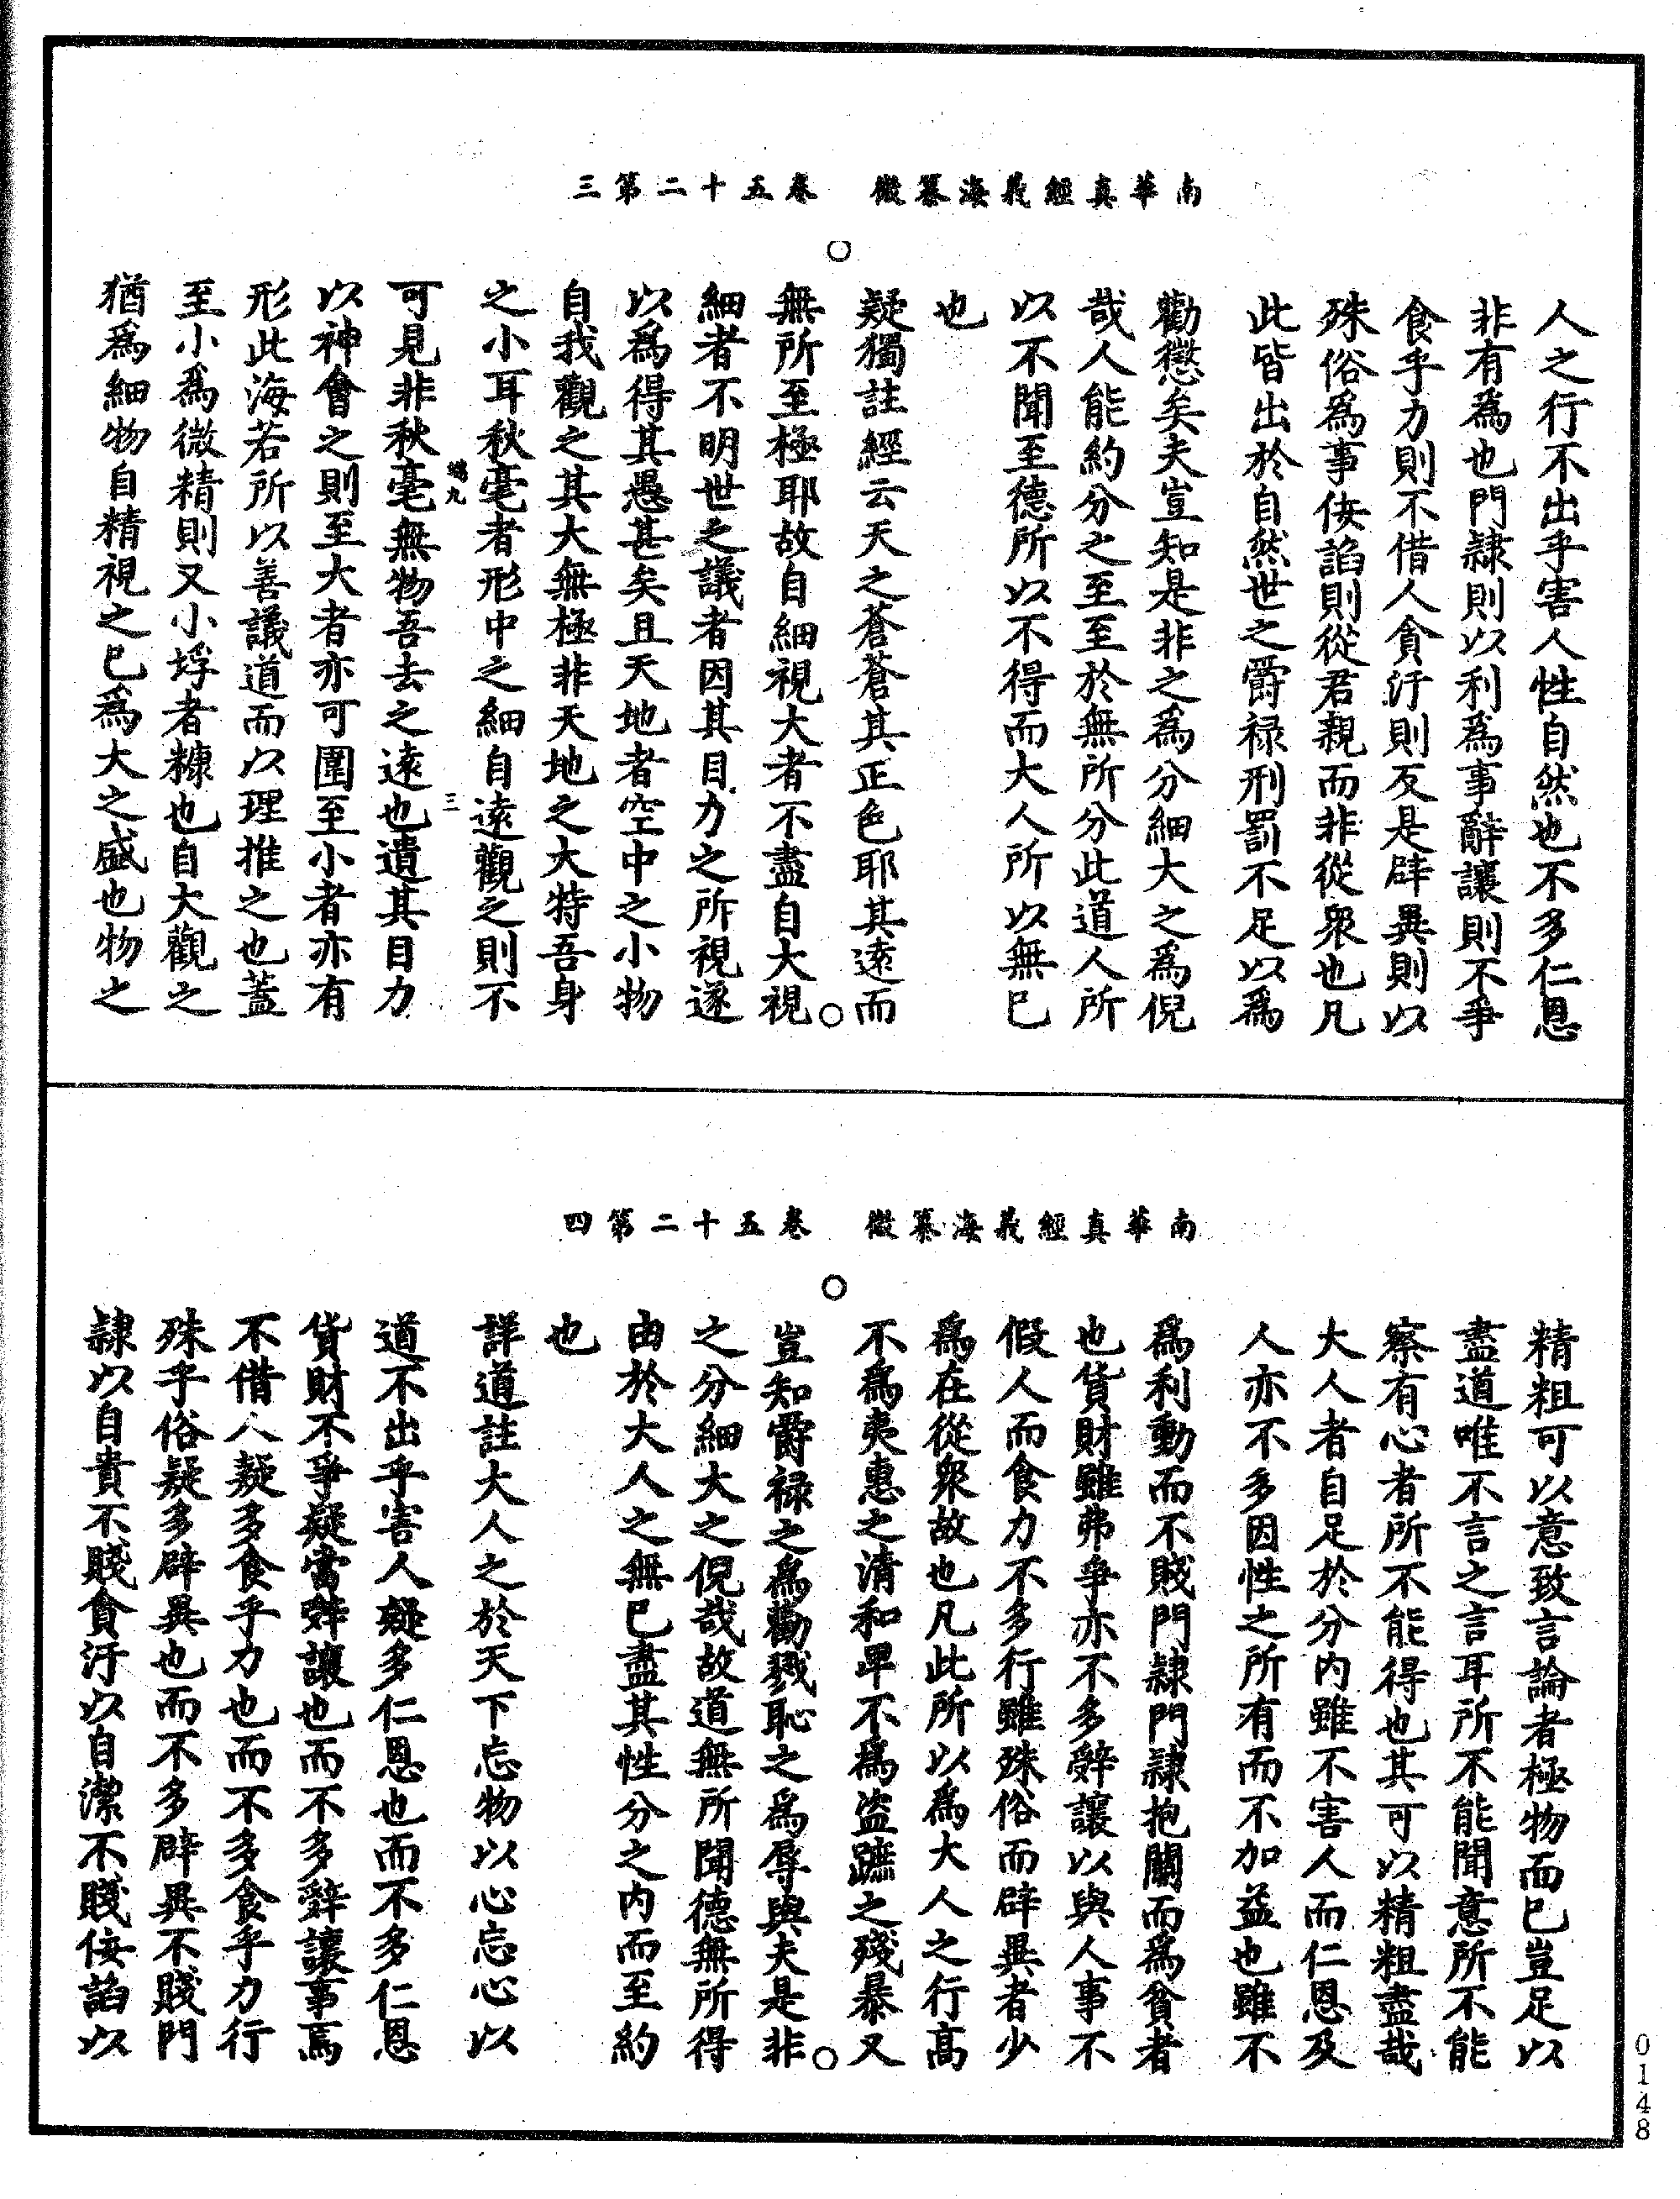 南華真經義海纂微　卷五十二第三
人之行不出乎害人性自然也不多仁恩
非有為也門隷則以利為事辭讓則不爭
食乎力則不借人貪汙則反是辟異則以
殊俗為事佞諂則從君親而非從衆也凡
此皆出於自然世之爵禄刑罰不足以為
勸懲矣夫豈知是非之為分細大之為倪
哉人能約分之至至於無所分此道人所
以不聞至德所以不得而大人所以無已
也
疑獨註經云天之蒼蒼其正色耶其遠而
無所至極耶故自細視大者不盡自大視
細者不明世之議者因其目力之所視遂
以為得其愚甚矣且天地者空中之小物
自我觀之其大無極非天地之大特吾身
之小耳秋毫者形中之細自遠觀之則不
端九
三
可見非秋毫無物吾去之遠也遺其目力
以神會之則至大者亦可圍至小者亦有
形此海若所以善議道而以理推之也蓋
至小為微精則又小垺者糠也自大觀之
猶為細物自精視之已為大之盛也物之
南華真經義海纂微　卷五十二第四
精粗可以意致言論者極物而已豈足以
盡道唯不言之言耳所不能聞意所不能
察有心者所不能得也其可以精粗盡哉
大人者自足於分内雖不害人而仁恩及
人亦不多因性之所有而不加益也雖不
為利動而不賤門隷門隷抱關而為貧者
也貨財雖弗爭亦不多辭讓以與人事不
假人而食力不多行雖殊俗而辟異者少
為在從衆故也凡此所以為大人之行高
不為夷惠之清和卑不為盗蹠之殘暴又
豈知爵禄之為勸戮恥之為辱與夫是非
之分細大之倪哉故道無所聞德無所得
由於大人之無已盡其性分之内而至約
也
詳道註大人之於天下忘物以心忘心以
道不出乎害人疑多仁恩也而不多仁恩
貨財不爭疑當辭讓也而不多辭讓事焉
不借人疑多食乎力也而不多食乎力行
殊乎俗疑多辟異也而不多辟異不賤門
隷以自貴不賤貪汙以自潔不賤佞諂以
0148